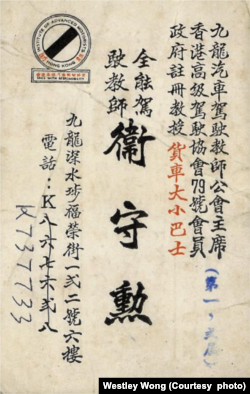 九龍汽車駕駛教師公會主席
香港高級駕駛協會79號會員
政府註冊教授貨車大小巴士
全能駕
駛教師
衞守勲
九龍深水埗福榮街一弍二號六樓
電話：K八六七六弍八
K737733
Westley Wong (Courtesy photo)